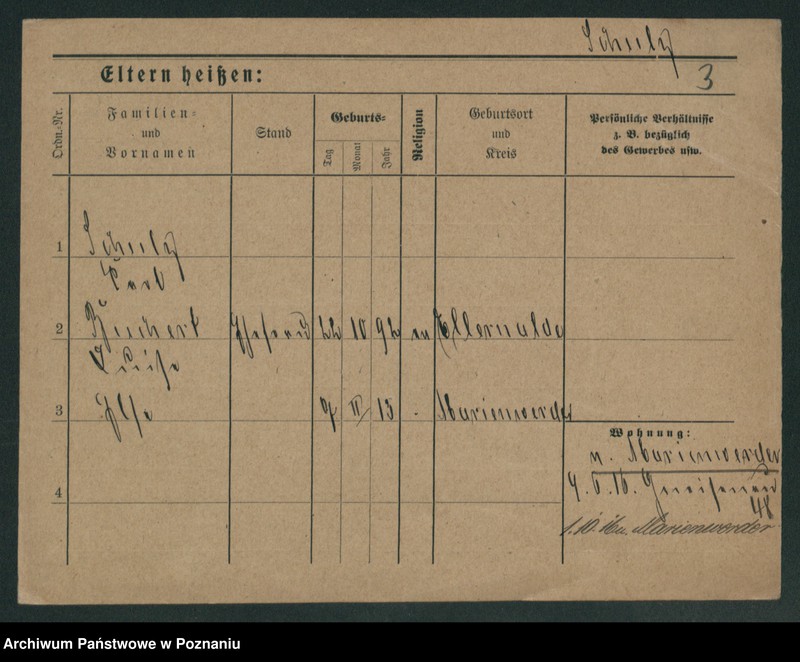 Schulz
3
Eltern heißen:
Ordn.-Nr.
Familien-
und
Vornamen
Stand
Geburts-
Tag
Monat
Jahr
Religion
Geburtsort
und
Kreis
Persönliche Verhältnisse
z. B. bezüglich
des Gewerbes usw.
1 Schulz
2 Ehefrau 22 10 92 ev Ellerwalde
Luise
3 Ilse 9 II 13 Marienwerder
Wohnung:
n. Marienwerder
4 Gneisenau
48
1.10.16 n. Marienwerder
Archiwum Państwowe w Poznaniu